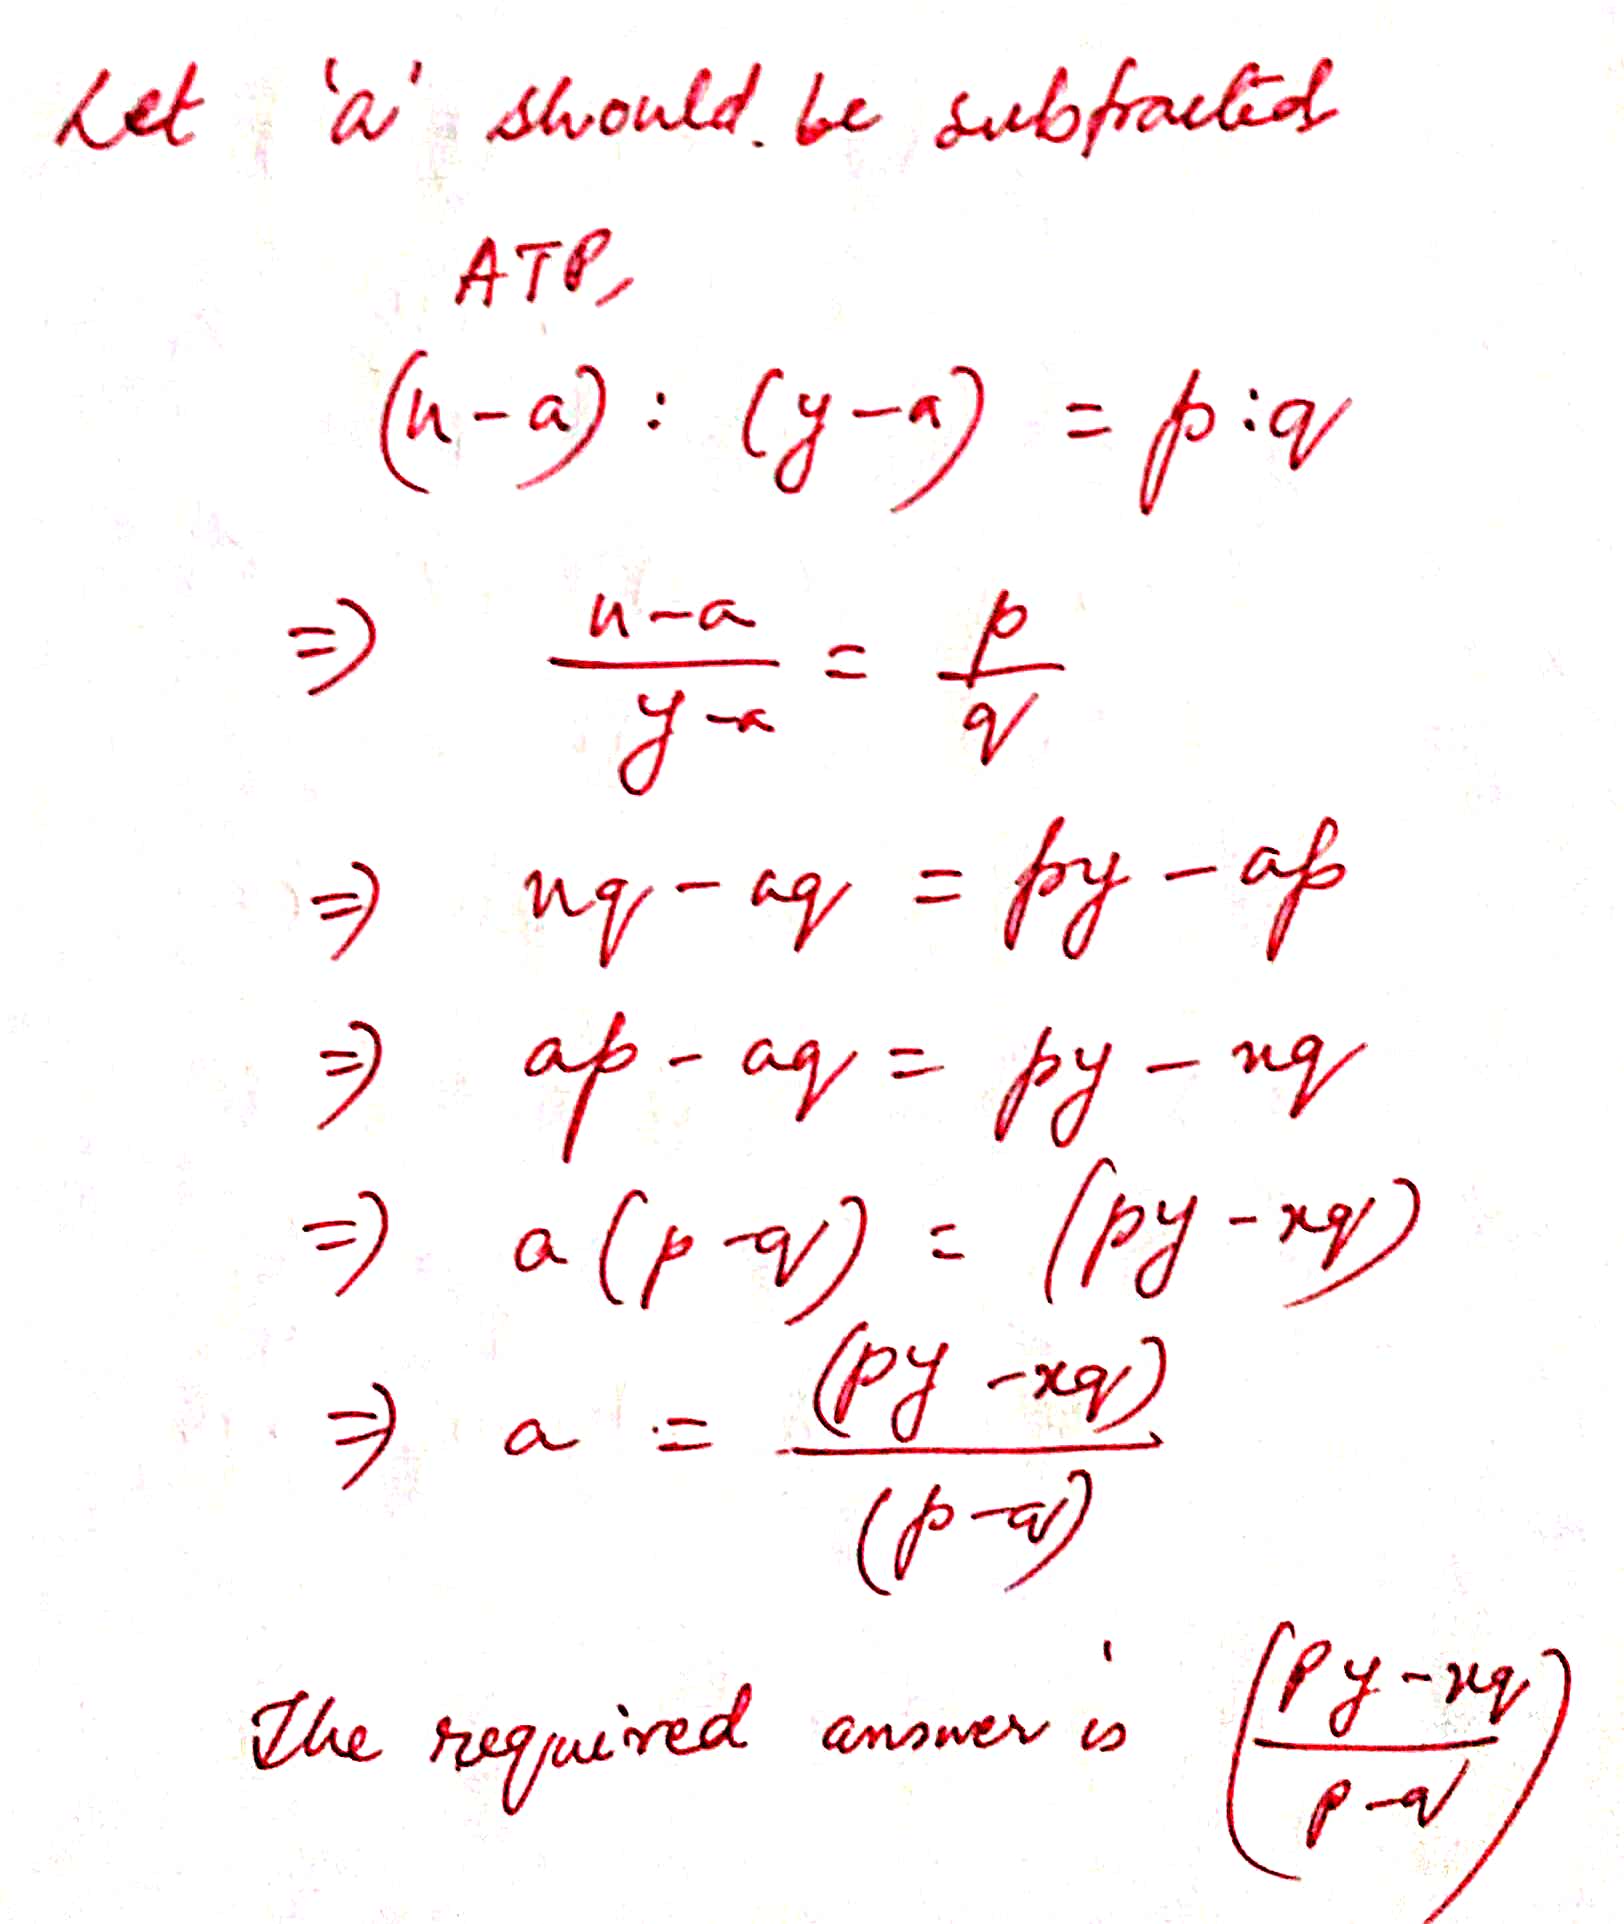 Let 'a' should be subtracted
ATP,
(x-a) : (y-a) = p:q
=> x-a/y-a = p/q
=> xq - aq = py - ap
=> ap - aq = py - xq
=> a(p-q) = (py-xq)
=> a = (py-xq)/(p-q)
The required answer is (py-xq/p-q)